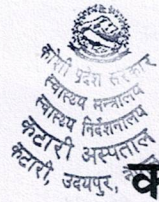 कोशी प्रदेश सरकार
स्वास्थ्य मन्त्रालय
स्वास्थ्य निर्देशनालय
कटारी अस्पताल
कटारी, उदयपुर,